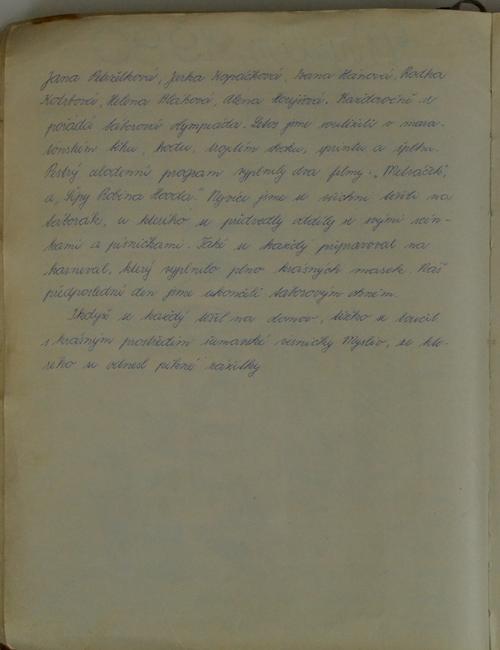 Jana Petržílková, Jirka Kopáčková, Ivana Hánová, Radka
Kolrbová, Helena Hlaková, Alena Horyjsová. Každoročně se
pořádá táborová olympiáda. Letos jsme soutěžili v mara-
tonském běhu, hodu, trojitém skoku, sprintu a šplhu.
Pestrý celodenní program vyplnily dva filmy: „Metráček",
a „Šípy Robina Hooda". Nejvíce jsme se všichni těšili na
táborák, u kterého se předvedly oddíly se svými scén-
kami a písničkami. Také se každý připravoval na
karneval, který vyplnilo plno krásných masek. Náš
předposlední den jsme ukončili táborovým ohněm.
I když se každý těšil na domov, těžko se loučil
s krásným prostředím šumavské vesničky Myslív, ze kte-
rého si odnesl pěkné zážitky